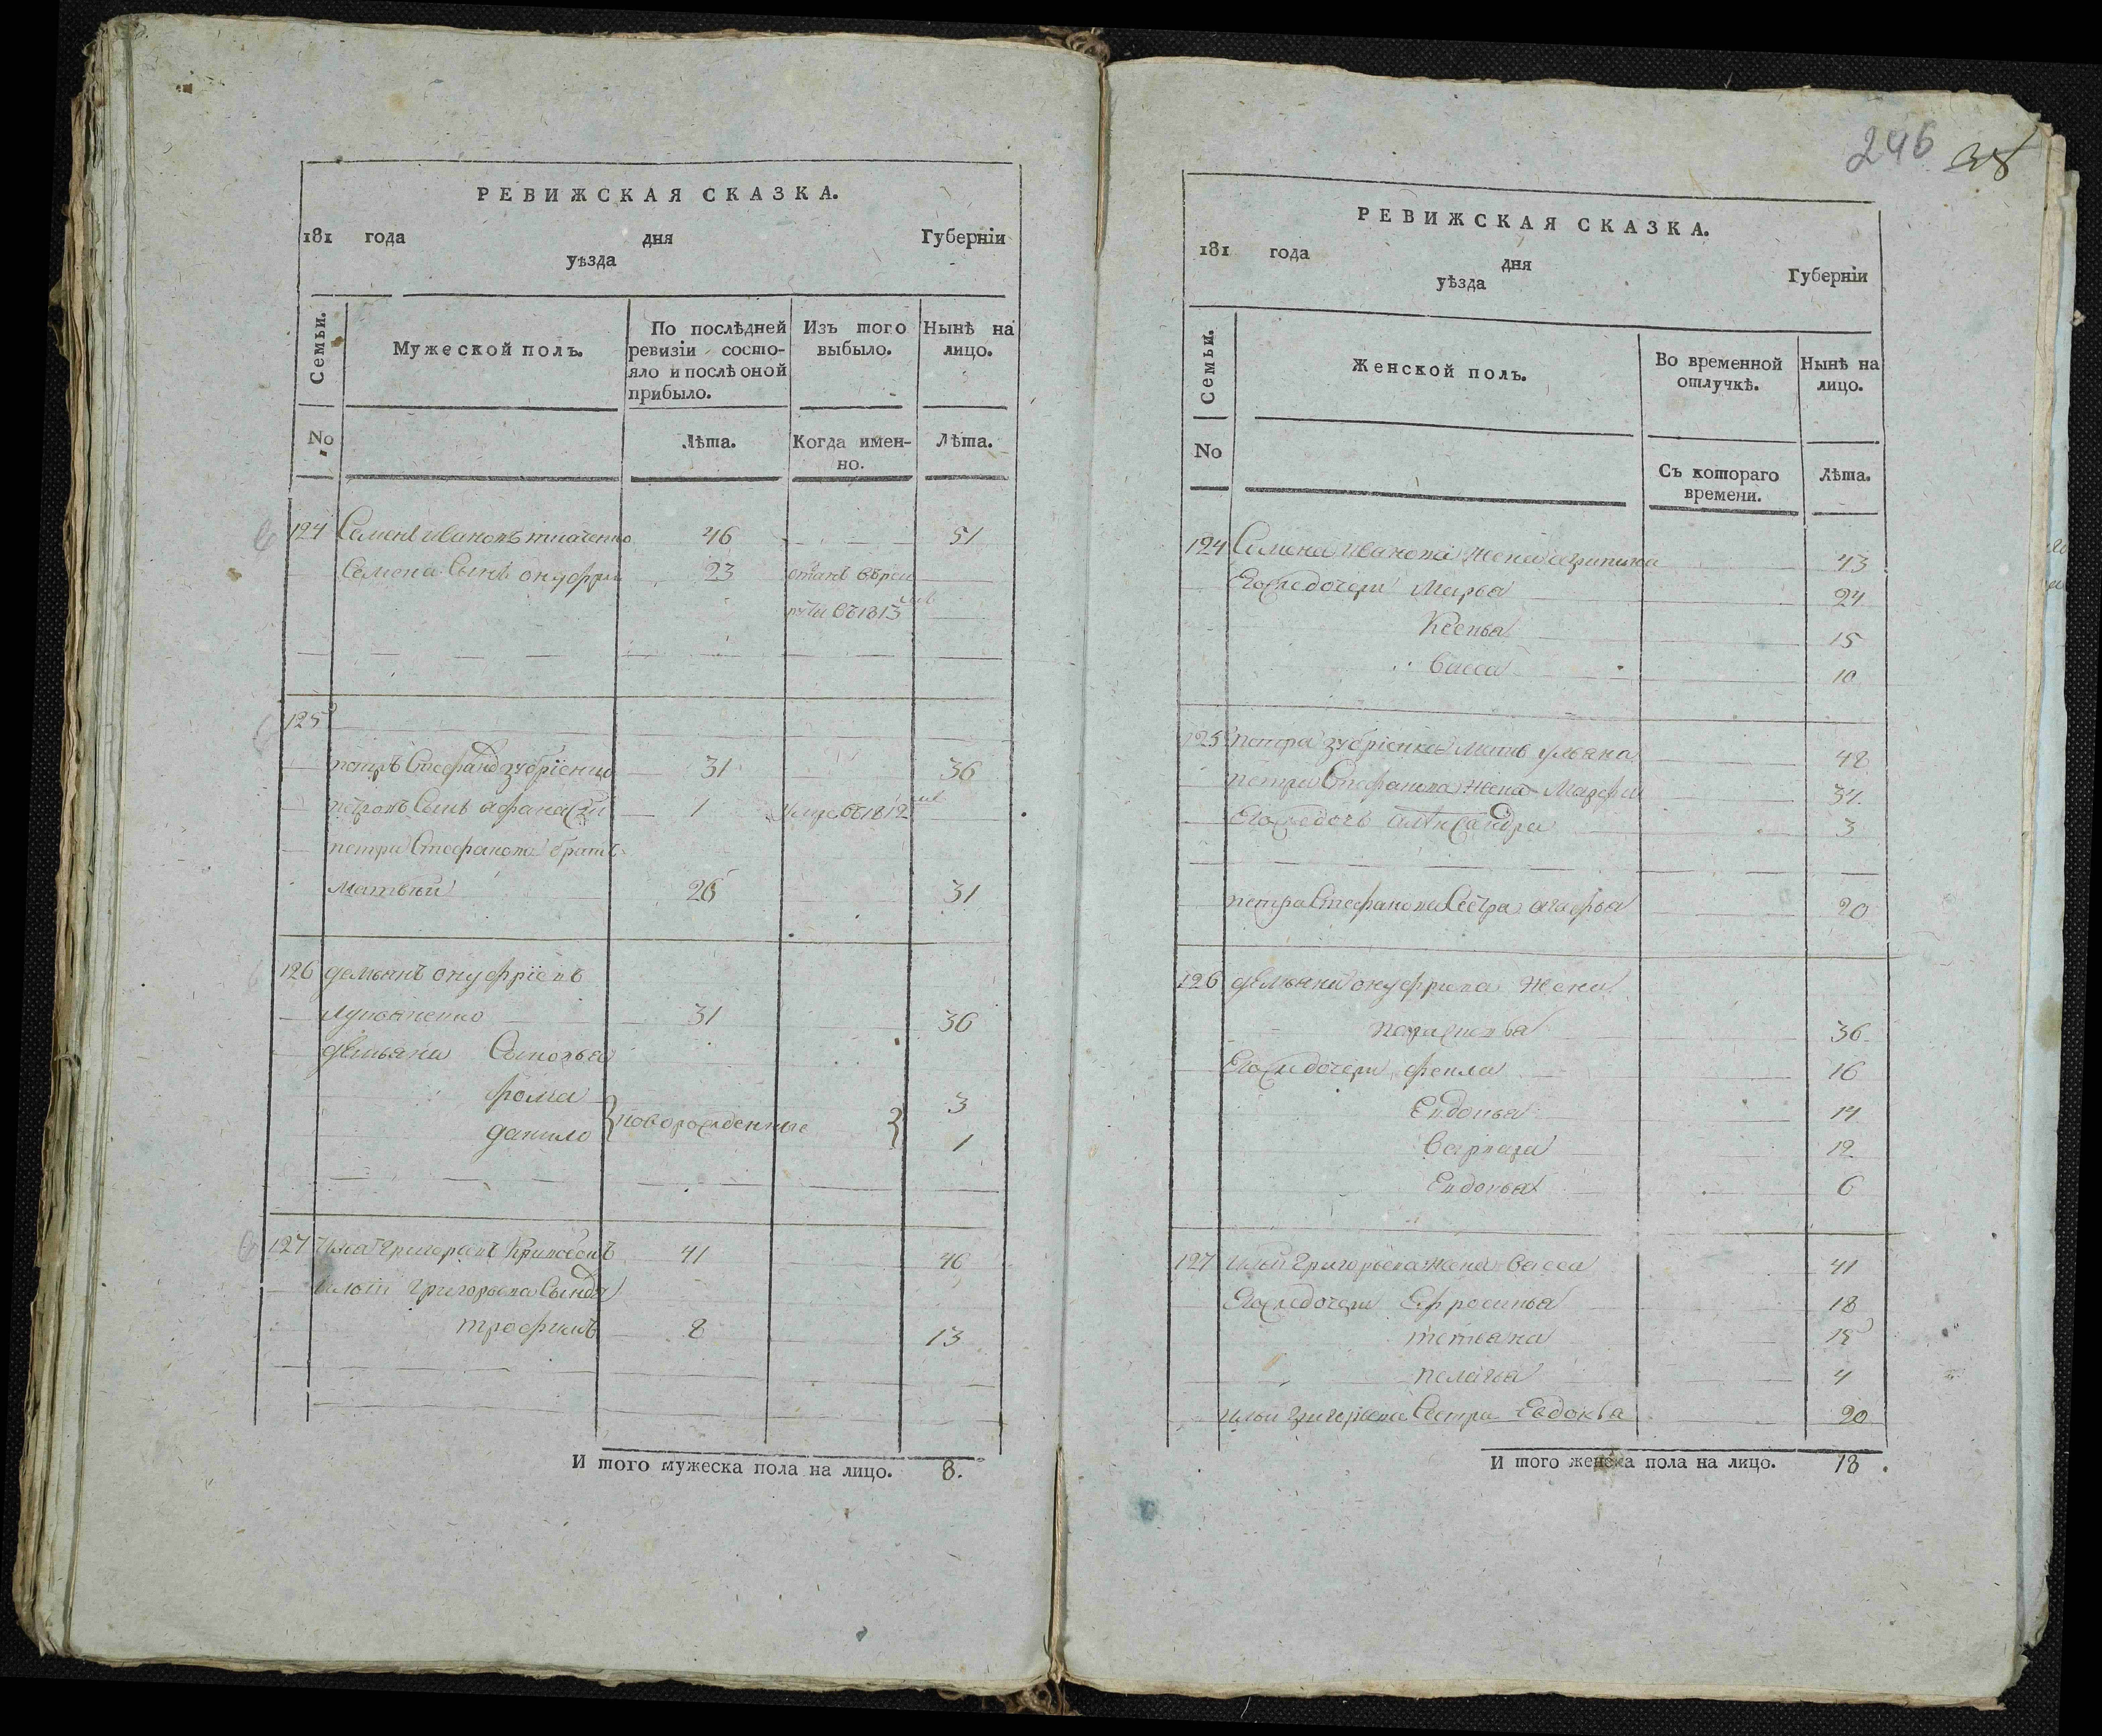 РЕВИЖСКАЯ СКАЗКА.
181 года дня Губерніи
уѣзда
Семьи.
Мужеской полъ.
По послѣдней ревизіи состо-
яло и послѣ оной
прибыло.
Изъ того
выбыло.
Нынѣ на
лицо.
No
Лѣта.
Когда имен-
но.
Лѣта.
124 Семенъ Ивановъ ткаченко 46 51
Семена Сынъ онуфри 23 отданъ въ рек
руты въ 1813
125
петръ Стефановъ зубрíенко 31 36
петровъ Сынъ афанасій 1 умре въ 1812
петра Стефанова братъ
матвѣй 26 31
126 демьянъ онуфріевъ
лукьяненко 31 36
демьяна Сыновья
фома 3
новорожденные
данило 1
127 Илья григорьевъ 41 46
ильи григорьева Сынъ
трофимъ 8 13
И того мужеска пола на лицо. 8.
246 38
РЕВИЖСКАЯ СКАЗКА.
181 года дня Губерніи
уѣзда
Семьи.
Женской полъ.
Во временной
отлучкѣ.
Нынѣ на
лицо.
No
Съ котораго
времени.
Лѣта.
124 Семена Иванова жена агрипина 43
Егожедочери Марья 24
Ксенья 15
Васса 10
125 петра зубріенка мать ульяна 48
петра Стефанова жена Марфа 34
Егожедочь александра 3
петра Стефанова Сестра агафья 20
126 демьяна онуфриева жена
парасковья 36
Егожедочери фекла 16
Евдокья 14
Варвара 12
Евдокья 6
127 ильи григорьева жена Васса 41
Егожедочери Ефросинья 18
татьяна 15
пелагья 4
ильи григорьева Сестра Евдокѣа 20
И того женска пола на лицо. 18.